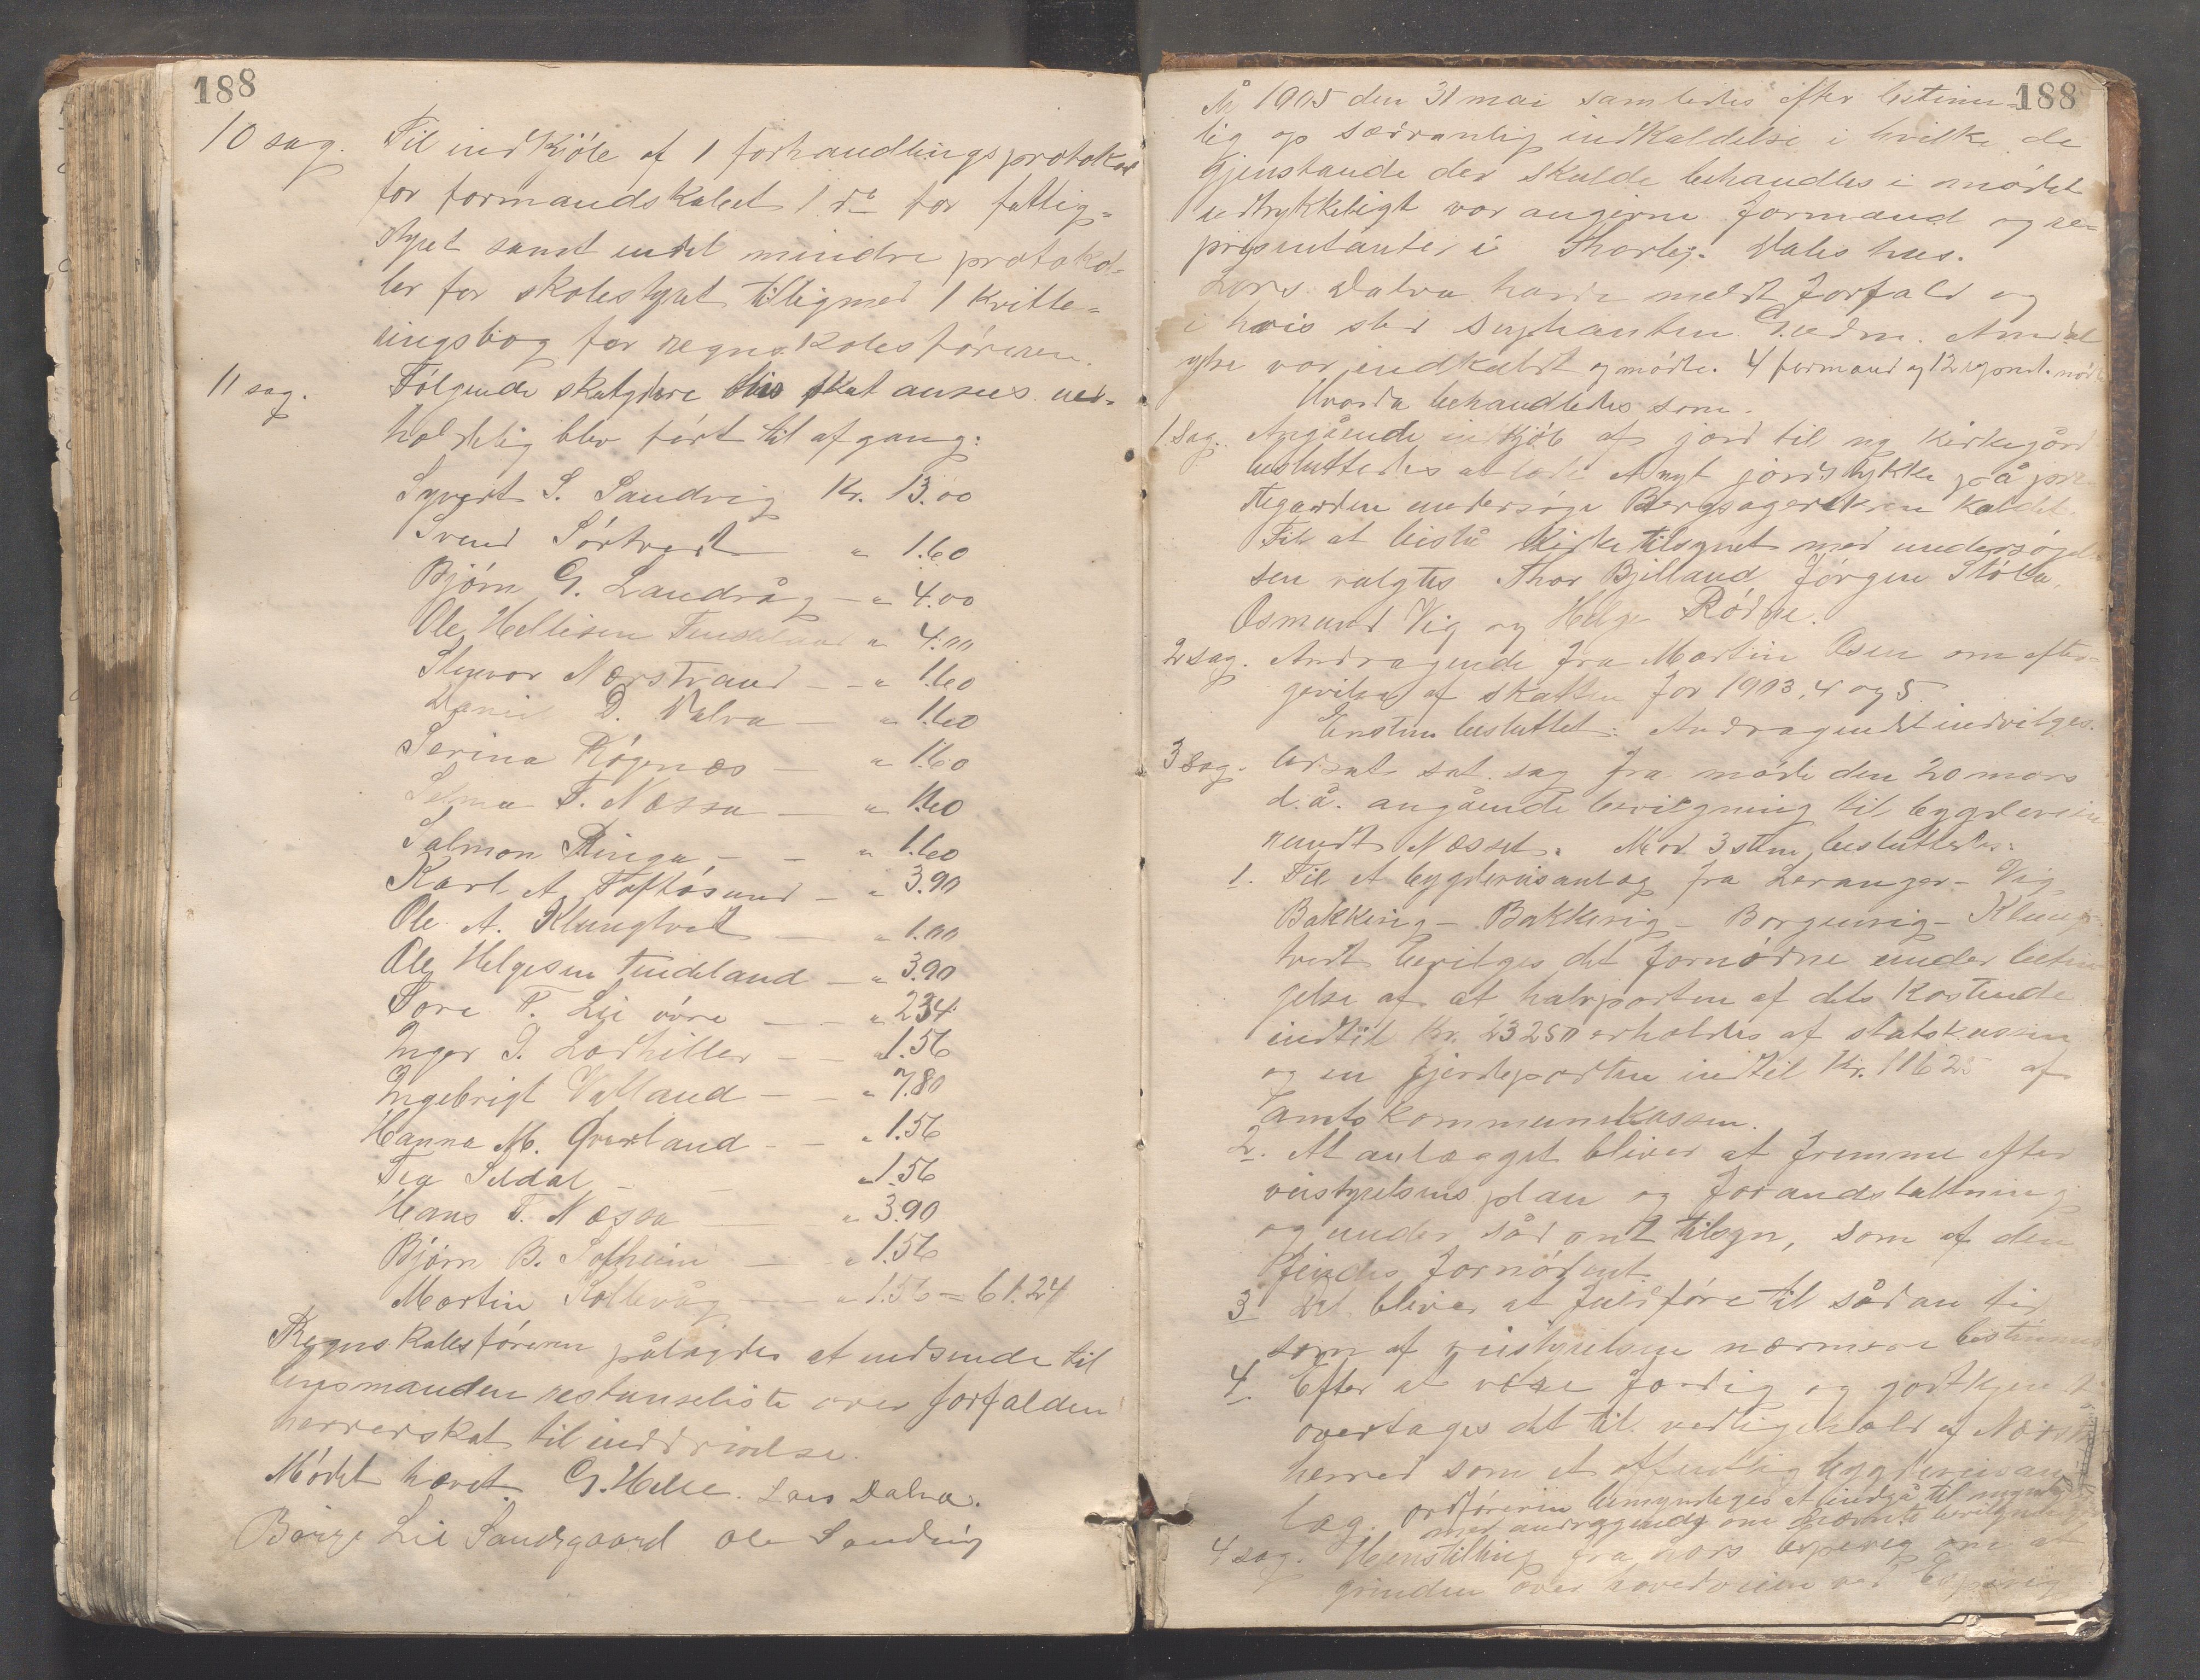 188
10 sag. Til indkjöb af 1 forhandlingsprotokol
for formandskabet 1 do for fattig=
styret samt endel mindre protokol=
ler for skolestyret tilligmed 1 kvitte=
ringsbog for regnskabsföreren.
11 sag. Fölgende skatydere hvis skat ansees uer=
holdelig blev fört til afgang:
Syvert S. Sandvig Kr. 13.00
Svend Sörtvedt " 1.60
Björn G. Landråg - " 4.00
Ole Hellisen " 4.00
Nærstrand - - " 1.60
Daniel D. Dalva - " 1.60
Serina Rögenæs - " 1.60
Selma T. Næssa - " 1.60
Salmon Ringa - - " 1.60
Karl A. Toftösund - " 3.90
Ole A. Klungtvedt - " 1.00
Ole Helgesen Tindeland - " 3.90
Tore T. Lie övre - - " 2.34
Inger T. - - " 1.56
Ingebrigt Valland - - " 7.80
Hanna M. Qverland - - " 1.56
Tea Seldal - - " 1.56
Hans T. Næssa - " 3.90
Björn B. Solheim - " 1.56
Martin Kollevåg - " 1.56 = 61.24
Regnskabsföreren pålagdes at indsende til
lensmanden restanseliste over forfalden
herredskat til inddrivelse.
Mödet hævet. G. Helse. Lars Dalva.
Börge Lie Sandsgaard Ole Sandvig
188
År 1905 den 31 mai samledes efter lestem=
lig og sædvanlig indkaldelse i hvilke de
gjenstande der skulde behandles i mödet
udtrykkeligt var angivne formænd og re=
præsentanter i Thorleg. Vales hus.
Lars Dalva havde meldt forfald og
i hvis sted supleanten Gudm. Amdal
ytre var indkaldt og mödte. 4 formænd og 12 repræst. mödt
Hvorda behandledes som.
1 sag. Angående indkjöb af jord til ny kirkegård
besluttedes at lade et nyt jordstykke på præ
stegarden undersöge Bergsagerekren kaldet.
Til at bistå Kirketilsynet med undersögel
sen valgtes Thor Bjelland Jörgen Stölla,
Osmund Vig og Helge Rödne.
2 sag. Andragende fra Martin Osen om efter=
givelse af skatten for 1903, 4 og 5.
Enstem besluttet: Andragendet indvilges.
3 sag. Udsat sat. sag fra möde den 20 mars
d.å. angående bevilgning til bygdeveien
rundt Næsset. Mod 3 stem. besluttedes:
1. Til et bygdeveisanlæg fra Leranger - Vig
Bakkevig - Bakkevig - Borgenvig - Klung
tvedt bevilges det fornödne under betin
gelse af at halvparten af dets kostende
indtil Kr. 23250 erholdes af statskassen
og en fjerdeparten indtil Kr. 11625 af
amtskommunekassen.
2. At anlægget bliver at fremme efter
veistyrelsens plan og foranstaltning
og under sådant tilsyn, som af den
findes fornödent.
3 Det bliver at fuldföre til sådan tid
som af veistyrelsen nærmere bestemmes
4. Efter at være færdig og godtkjendt
overtages det til vedligehold af Nærst
herred som et offentlig bygdeveisan
læg. Ordföreren bemyndiges at indgå til
med andragende om nævnte bevilgning
4 sag. Henstilling fra Lars Espevig om at
grinden over hovedveien ved Espevig